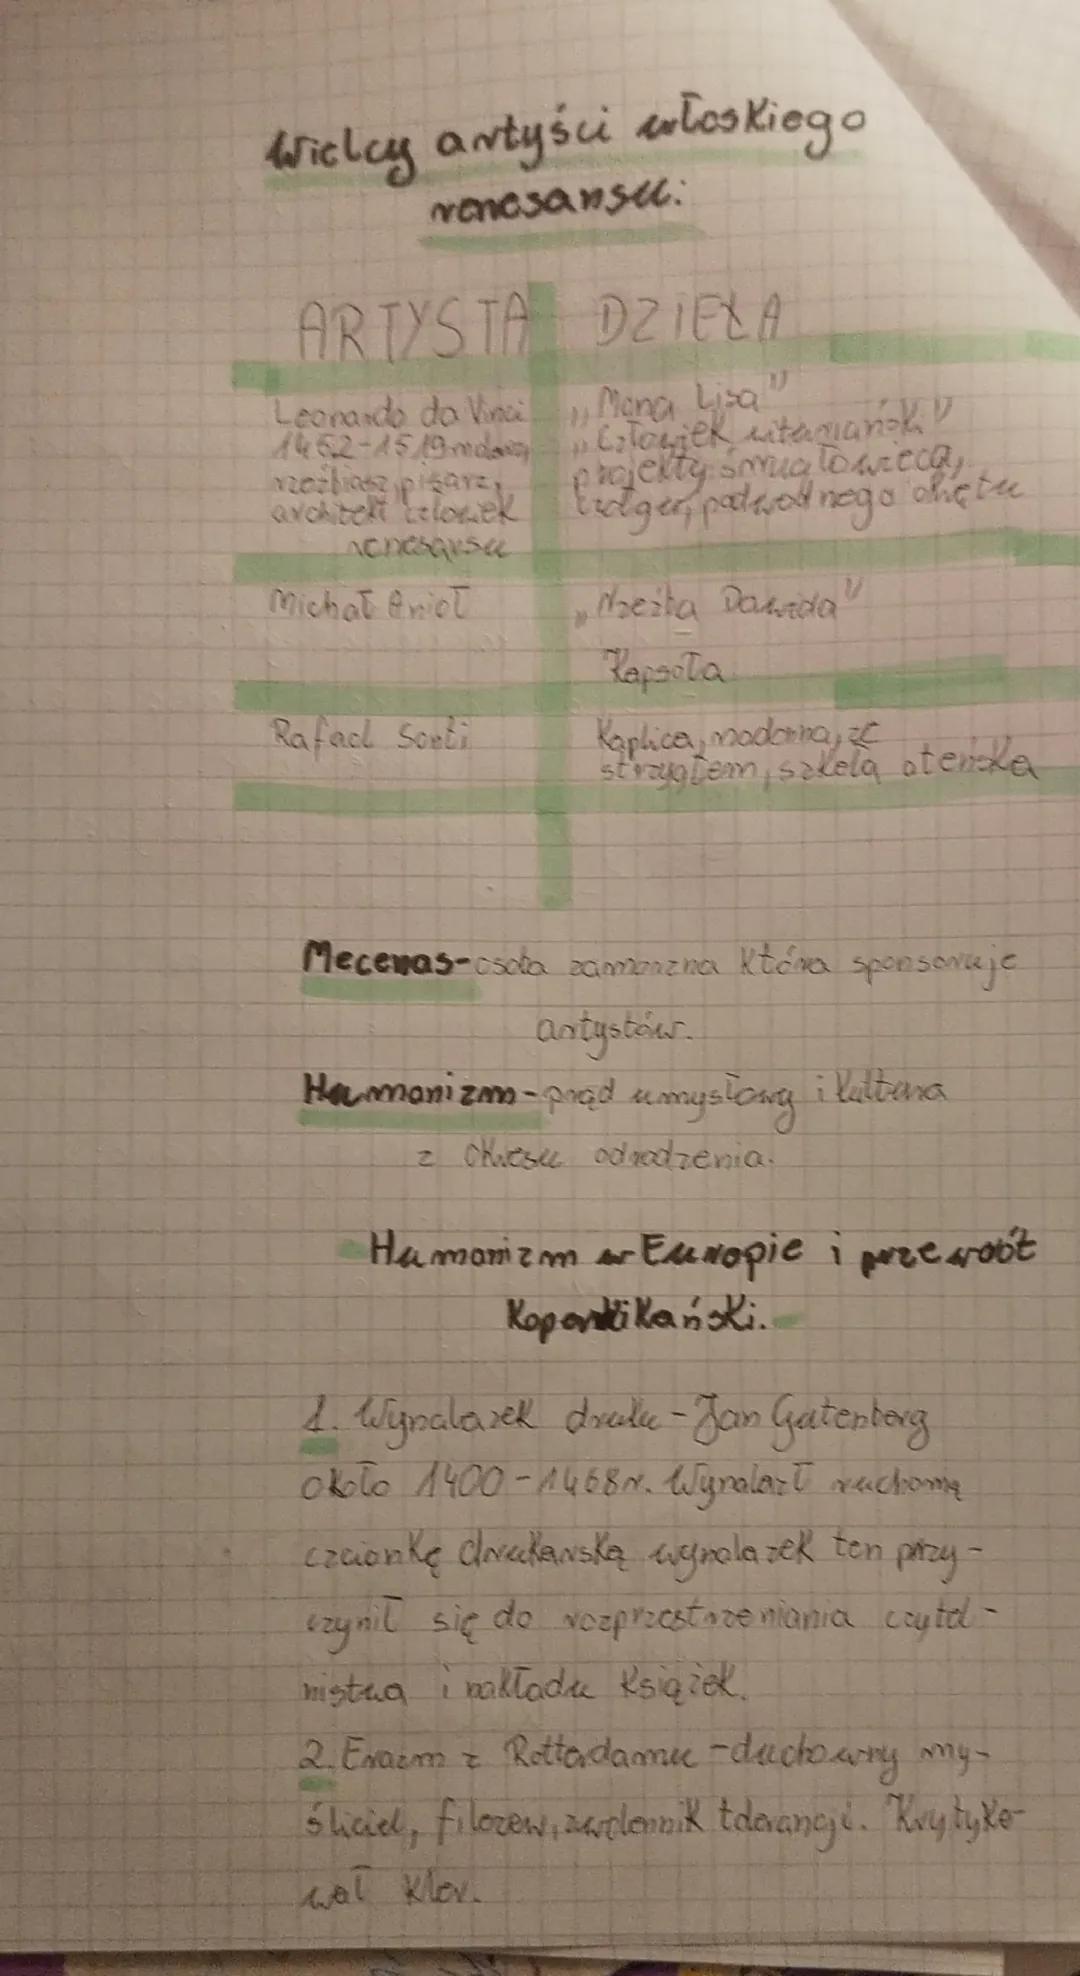 Wielcy artyści włoskiego
renesansu:
ARTYSTA DZIEŁA
Leonardo da Vinci
1452-1519 malarz,
rzeźbiarz, pisarz,
architekt człowiek
renesansu
„Mona Lisa"
„Człowiek witruwiański"
projekty: śmigłowieca,
czołgu, podwodnego okrętu
Michał Anioł
„Rzeźba Dawida"
Kapsoła
Rafael Santi
Kaplica, madonna, ze
strzygłem, szkoła ateńska
Mecenas-osoba zamożna która sponsoruje
artystów.
Humanizm-prąd umysłowy i kultura
z okresu odrodzenia.
Humanizm w Europie i przewrót
Kopernikański.
1. Wynalazek druku - Jan Gutenberg
około 1400-1468r. Wynalazł ruchomą
czcionkę drukarską wynalazek ten przy-
czynił się do rozprzestrzeniania czytel-
nistwa i nakładu książek.
2. Erazm z Rotterdamu - duchowny my-
śliciel, filozow, zwolennik tolerancji. Krytyko-
wał kler.